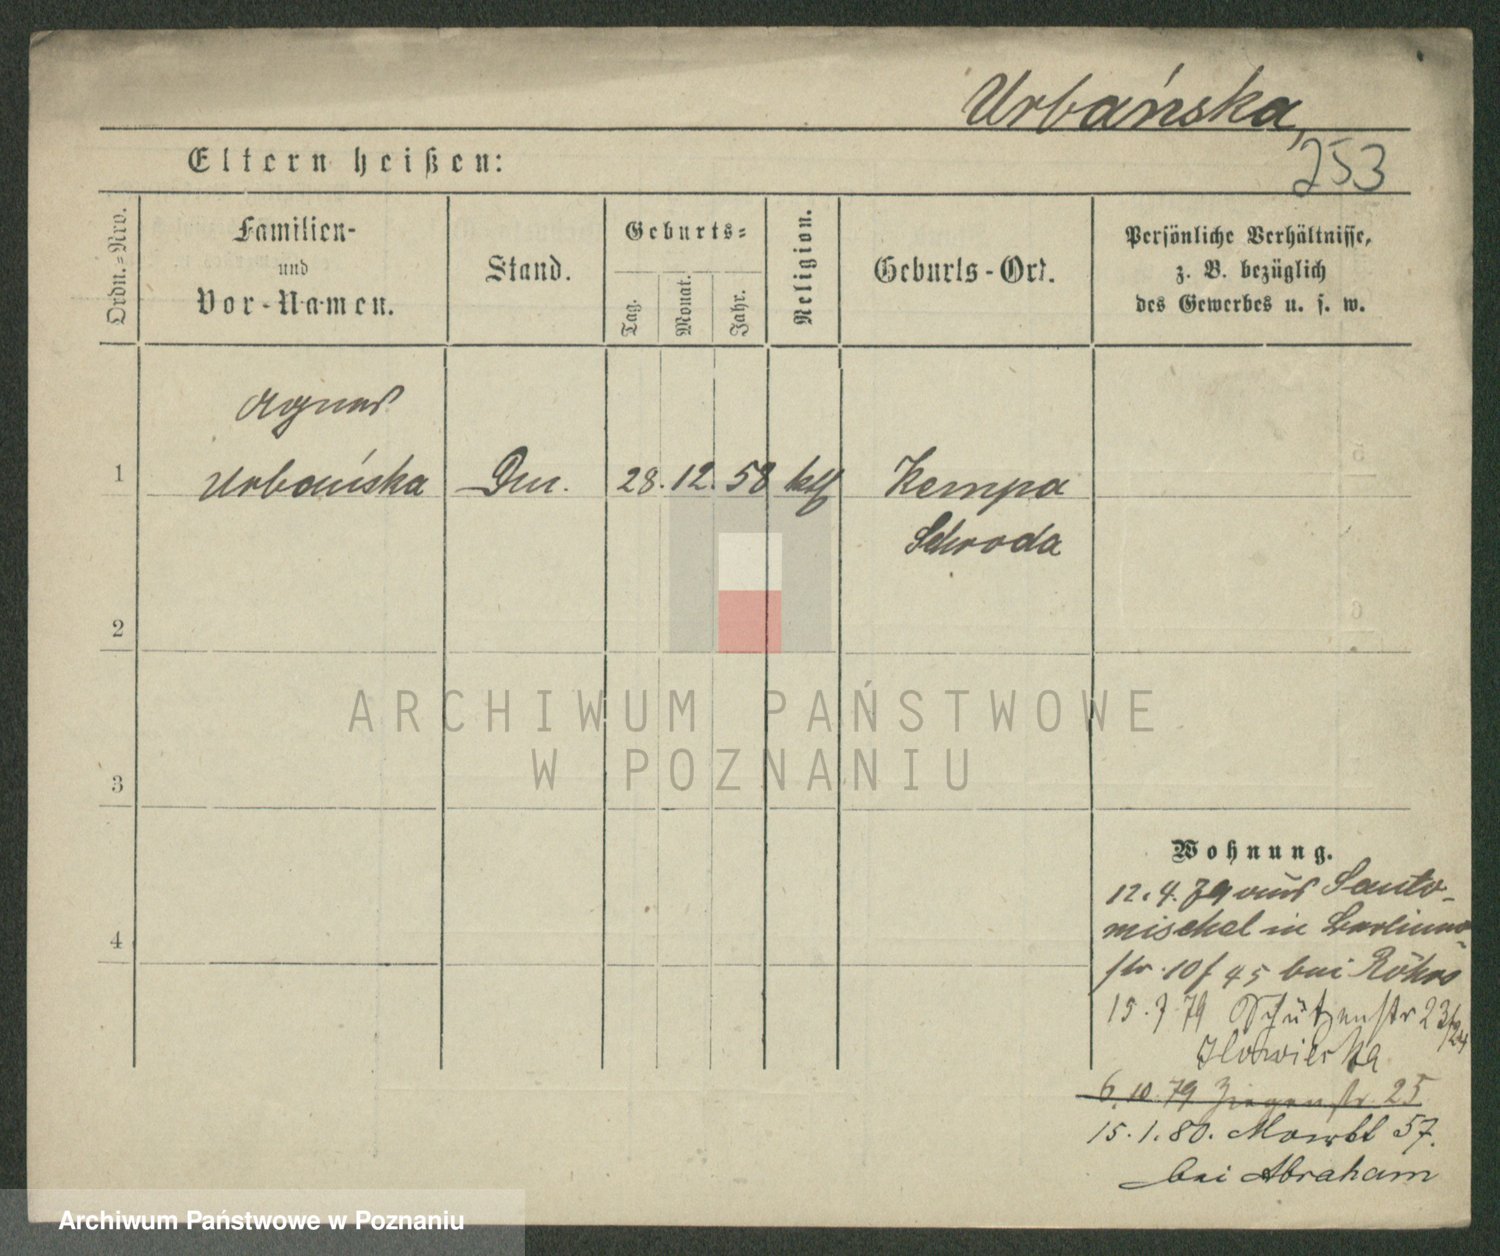 Urbańska,
253
Eltern heißen:
Ordn.-Nro.
Familien-
und
Vor-Namen.
Stand.
Geburts-
Tag.
Monat.
Jahr.
Religion.
Geburts-Ort.
Persönliche Verhältnisse,
z. B. bezüglich
des Gewerbes u. s. w.
Agnes
1 Urbańska 28. 12. 58 kth Kempa
Schroda
2
3
4
ARCHIWUM PAŃSTWOWE
W POZNANIU
Wohnung.
12. 4. 79 aus Santo-
mischel in Berliner-
str. 10 f 45 bei Röhrs
15. 7. 79 Schützenstr 23/24
6. 10. 79 Ziegenstr. 25
15. 1. 80. Markt 57.
bei Abraham
Archiwum Państwowe w Poznaniu